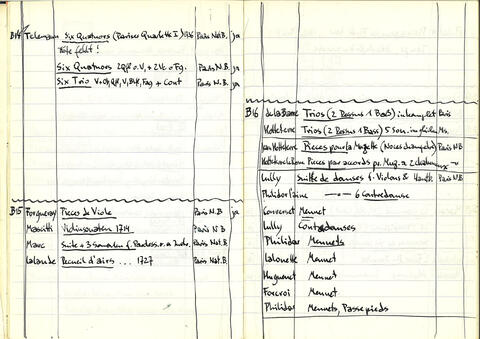 B14 Telemann Six Quatuors (Pariser Quartette I) 1736 Paris Nat. B. ja
Flöte fehlt!
Six Quatuors 2Qfl o. V, + 2Vc o Fg. Paris N.B. ja
Six Trio V+Ob, Qfl, V, Blfl, Fag + Cont Paris N.B. ja
B15 Forqueray Pieces de Viole Paris N.B ja
Mascitti Violinsonaten 1714 Paris N B
Marc Suite + 3 Sonaten f. Pardess. o. a. Instr. Paris Nat. B.
Lalande Recueil d'airs ... 1727 Paris Nat. B
B16 de la Barre Trios (2 Dessus 1 Bass) inkomplett Paris
Hotteterre Trios (2 Dessus 1 Bass) 5 Son. Ms.
Jean Hotteterre Pieces pour la Muzette (Noces champetre) Paris NB
Hotteterre Pieces par accords pr. Muz. a 2 chalumeaux
Lully Suitte de danses f. Violons & Hautb Paris N.B.
Philidor l'aine 6 Contredanse
Converset Menuet
Lully Contredanses
Philidor Menuets
Lalouette Menuet
Huguenet Menuet
Forcroi Menuet
Philidor Menuets, Passepieds